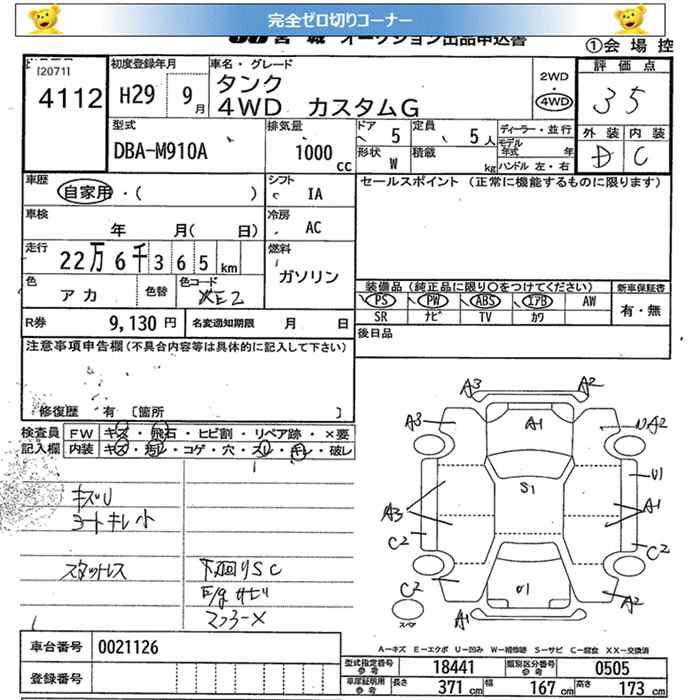 完全ゼロ切りコーナー
JU 宮 城 オークション出品申込書
①会 場 控
[2071]
4112
初度登録年月
H29 9月
車名・グレード
タンク
4WD カスタムG
2WD
・
4WD
評 価 点
3 5
外 装 内 装
D C
型式
DBA-M910A
排気量
1000 CC
ドア 5
定員 5人
形状 W
積載 kg
ディーラー・並行
モデル年式 年
ハンドル 左・右
車歴
自家用・( )
シフト IA
セールスポイント (正常に機能するものに限ります)
車検
年 月( 日)
冷房 AC
走行
22万6千365km
燃料
ガソリン
色
アカ
色替
色コード
XE2
装備品(純正品に限り○をつけてください)
新車保証書
PS PW ABS エアB AW
有・無
SR ナビ TV カワ
R券 9,130 円
名変通知期限 月 日
後日品
注意事項申告欄(不具合内容等は具体的に記入して下さい)
修復歴 有 [箇所 ]
検査員 FW キズ・飛石・ヒビ割・リペア跡・×要
記入欄 内装 キズ・汚レ・コゲ・穴・スレ・キレ・破レ
キズU
コートキレ小
スタットレス
下廻りSC
E/gサビ
マフラーX
A3 A2
A3 A1 A2
U1
S1
A3 A1
C2 C2
C2 U1 A2
A1
スペア
A－キズ E－エクボ U－凹み W－補修跡 S－サビ C－腐食 XX－交換済
車台番号 0021126
型式指定番号 参考 18441
類別区分番号 参考 0505
登録番号
車庫証明用 参考 長さ 371cm 幅 167cm 高さ 173cm